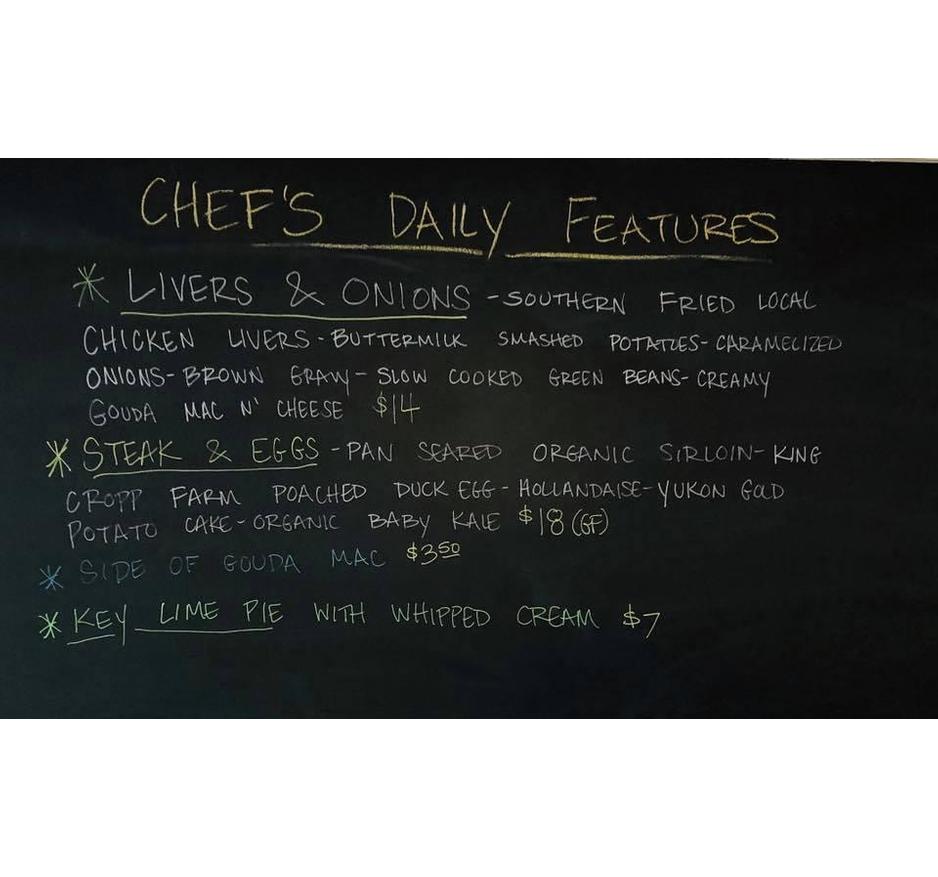 CHEF'S DAILY FEATURES
* LIVERS & ONIONS - SOUTHERN FRIED LOCAL
CHICKEN LIVERS - BUTTERMILK SMASHED POTATOES - CARAMELIZED
ONIONS - BROWN GRAVY - SLOW COOKED GREEN BEANS - CREAMY
GOUDA MAC N' CHEESE $14
* STEAK & EGGS - PAN SEARED ORGANIC SIRLOIN - KING
CROPP FARM POACHED DUCK EGG - HOLLANDAISE - YUKON GOLD
POTATO CAKE - ORGANIC BABY KALE $18 (GF)
* SIDE OF GOUDA MAC $3.50
* KEY LIME PIE WITH WHIPPED CREAM $7